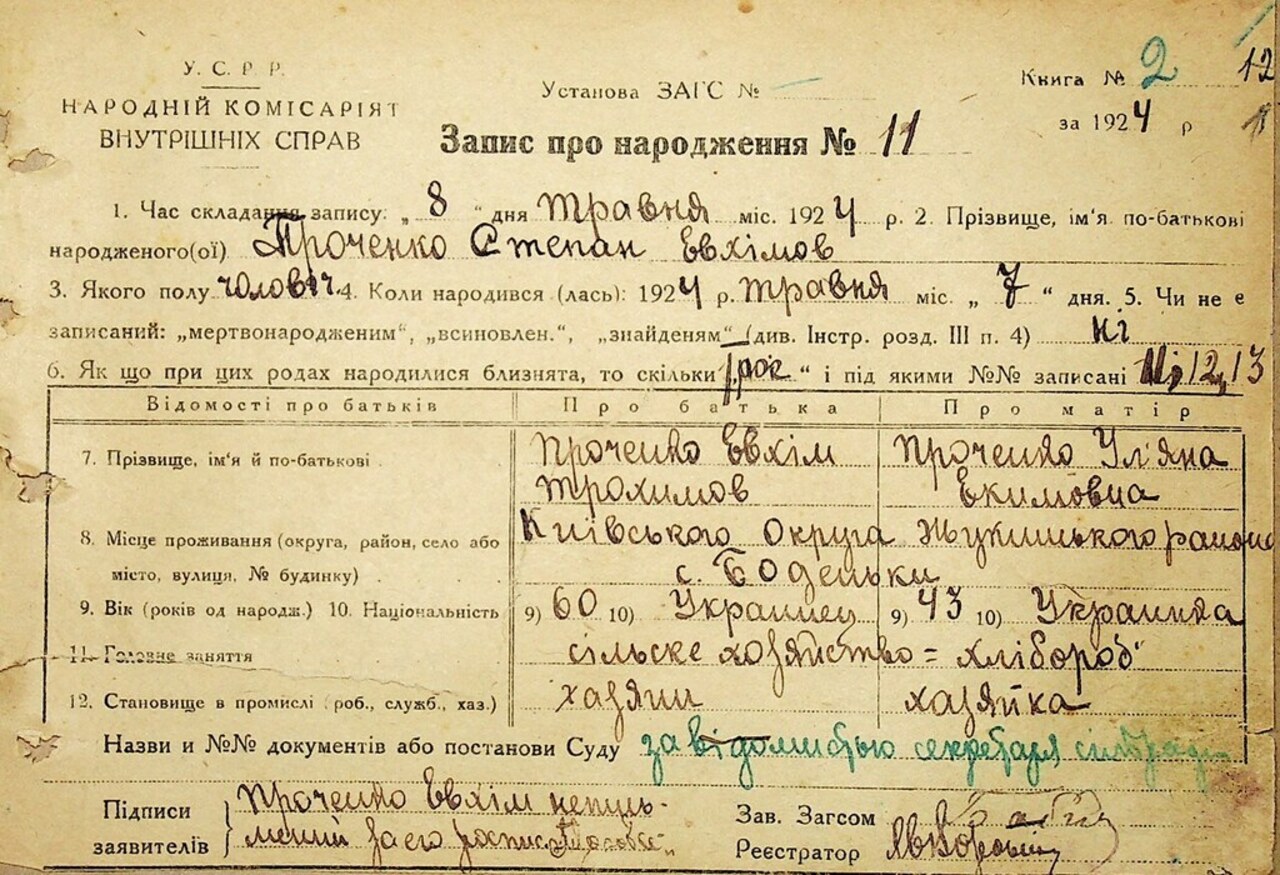 У. С. Р. Р.
НАРОДНІЙ КОМІСАРІЯТ
ВНУТРІШНІХ СПРАВ
Установа ЗАГС №
Книга № 2
12
за 1924 р
Запис про народження № 11
1. Час складання запису: „ 8 " дня травня міс. 1924 р. 2. Прізвище, ім'я по-батькові
народженого(ої) Проченко Степан Евхімов
3. Якого полу чоловіч. 4. Коли народився (лась): 1924 р. травня міс. „ 7 " дня. 5. Чи не є
записаний: „мертвонародженим", „всиновлен.", „знайденям" (див. Інстр. розд. III п. 4) ні
6. Як що при цих родах народилися близнята, то скільки „ " і під якими №№ записані 11, 12, 13
Відомості про батьків Про батька Про матір
7. Прізвище, ім'я й по-батькові Проченко Евхім Проченко Ул'яна
Трохимов Екимовна
8. Місце проживання (округа, район, село або Київського Округа Жукинського района
місто, вулиця, № будинку) с. Боденьки
9. Вік (років од народж.) 10. Національність 9) 60 10) Украинец 9) 43 10) Украинка
11. Головне заняття сільске хозяйство = хлібороб
12. Становище в промислі (роб., служб., хаз.) хазяин хазяйка
Назви и №№ документів або постанови Суду за відомистью секретаря
Підписи
заявителів
Проченко Евхім непись-
менний за его роспис
Зав. Загсом
Реєстратор